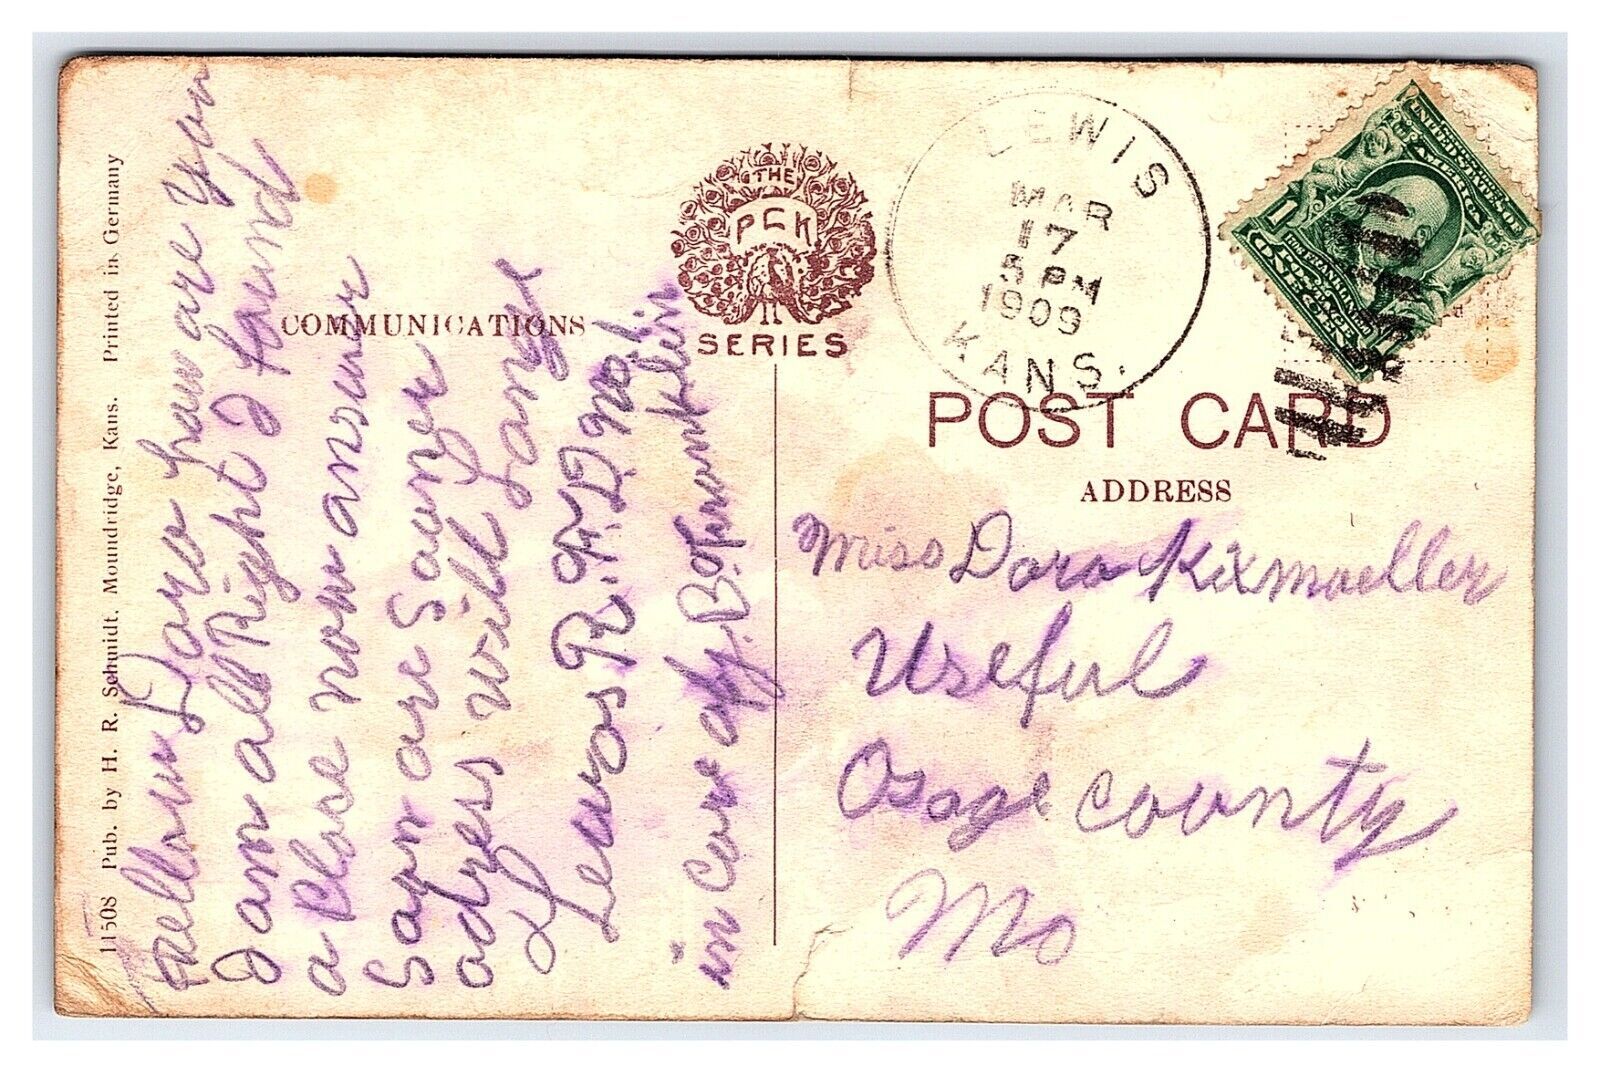 11508 Pub. by H. R. Schmidt. Moundridge, Kans. Printed in Germany
COMMUNICATIONS
THE
PCK
SERIES
LEWIS
MAR
17
5 PM
1909
KANS.
UNITED STATES OF
AMERICA
1 1
FRANKLIN
ONE CENT
POST CARD
ADDRESS
Hellow Dara how are you
I am all Right I found
a Place now answer
Sayn are Sauger
adress will Lange
Lewas R.F.D. no 1.
in care of J. B. Franklin
Miss Dora Kixmoeller
Useful
Osage County
Mo